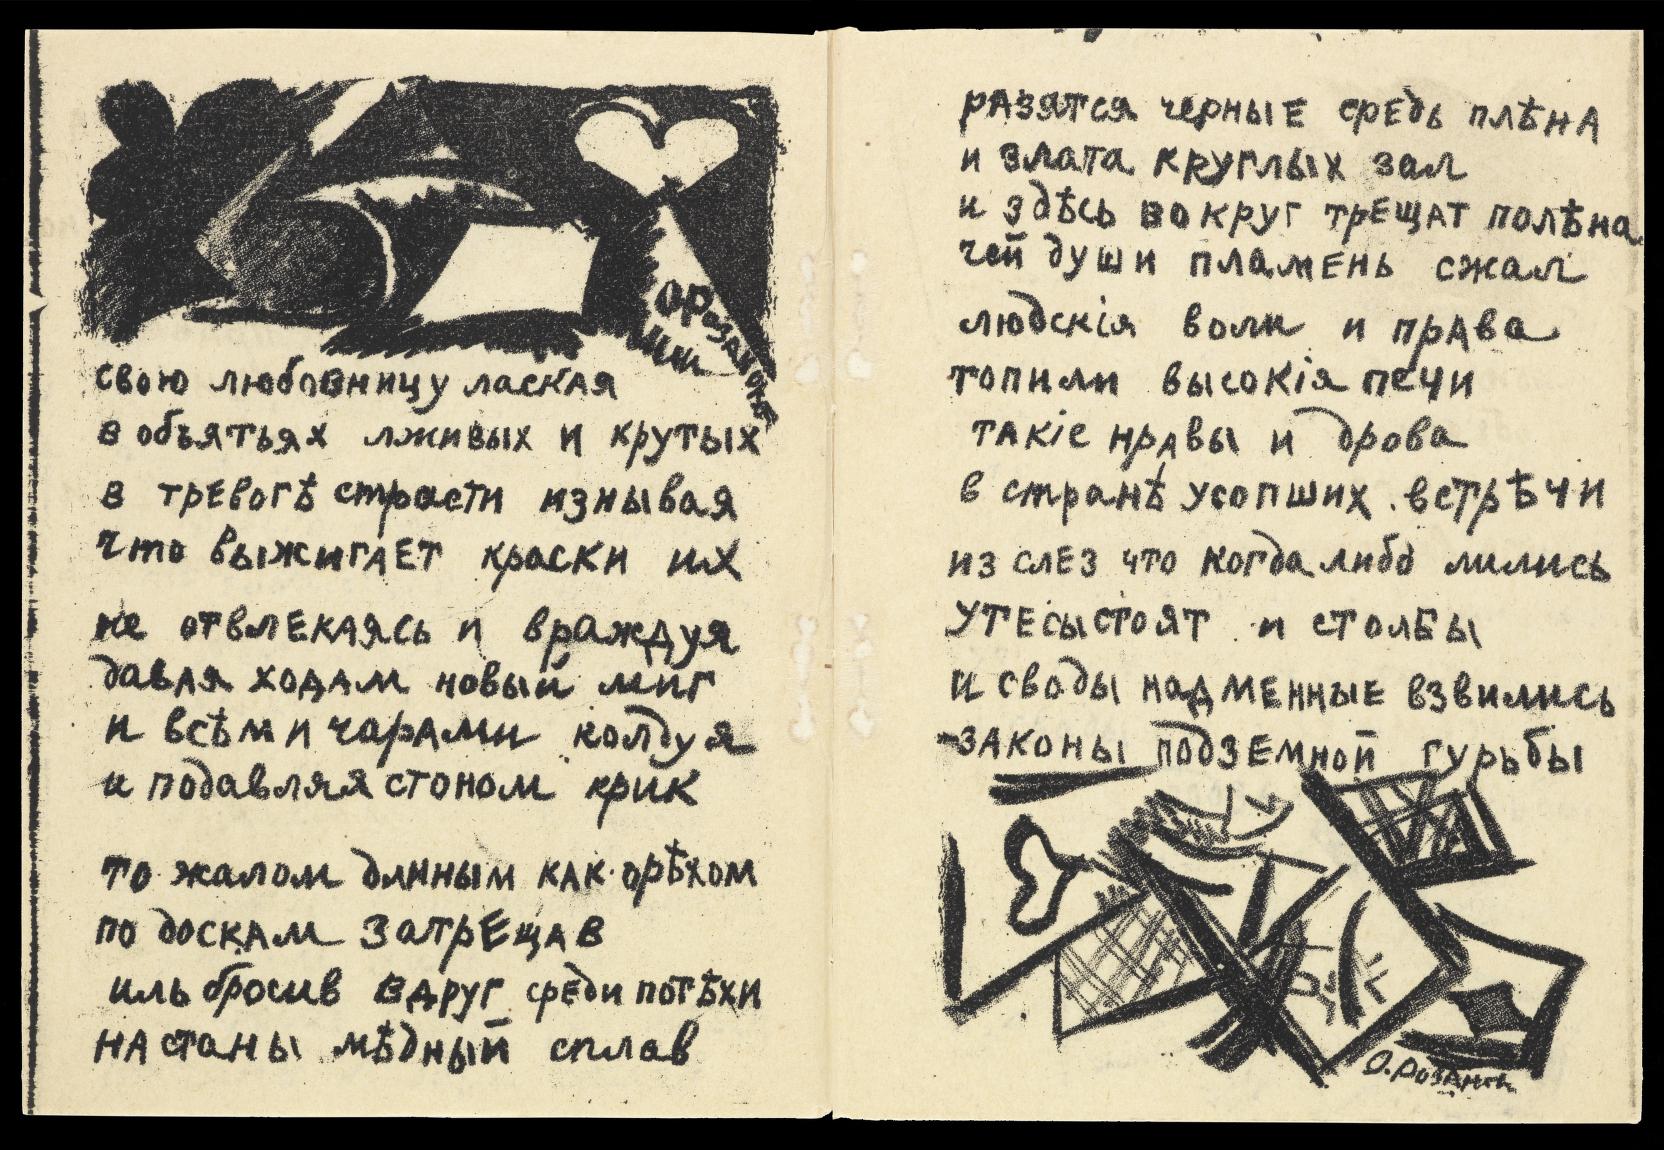 О Розановой
свою любовницу лаская
в объятьях лживых и крутых
в тревогѣ страсти изнывая
что выжигает краски их
не отвлекаясь и враждуя
давая ходам новый миг
и всѣми чарами колдуя
и подавляя стоном крик
то жалом длинным как орѣхом
по доскам затрещав
иль бросив вдруг среди потѣхи
на станы мѣдный сплав
разятся черные средь плѣна
и злата круглых зал
и здѣсь вокруг трещат полѣна
чей души пламень сжал
людскія воли и права
топили высокія печи
такіе нравы и дрова
в странѣ усопших встрѣчи
из слез что когда либо лились
утесы стоят и столбы
и своды надменные взвились
законы подземной гурьбы
О. Розанов